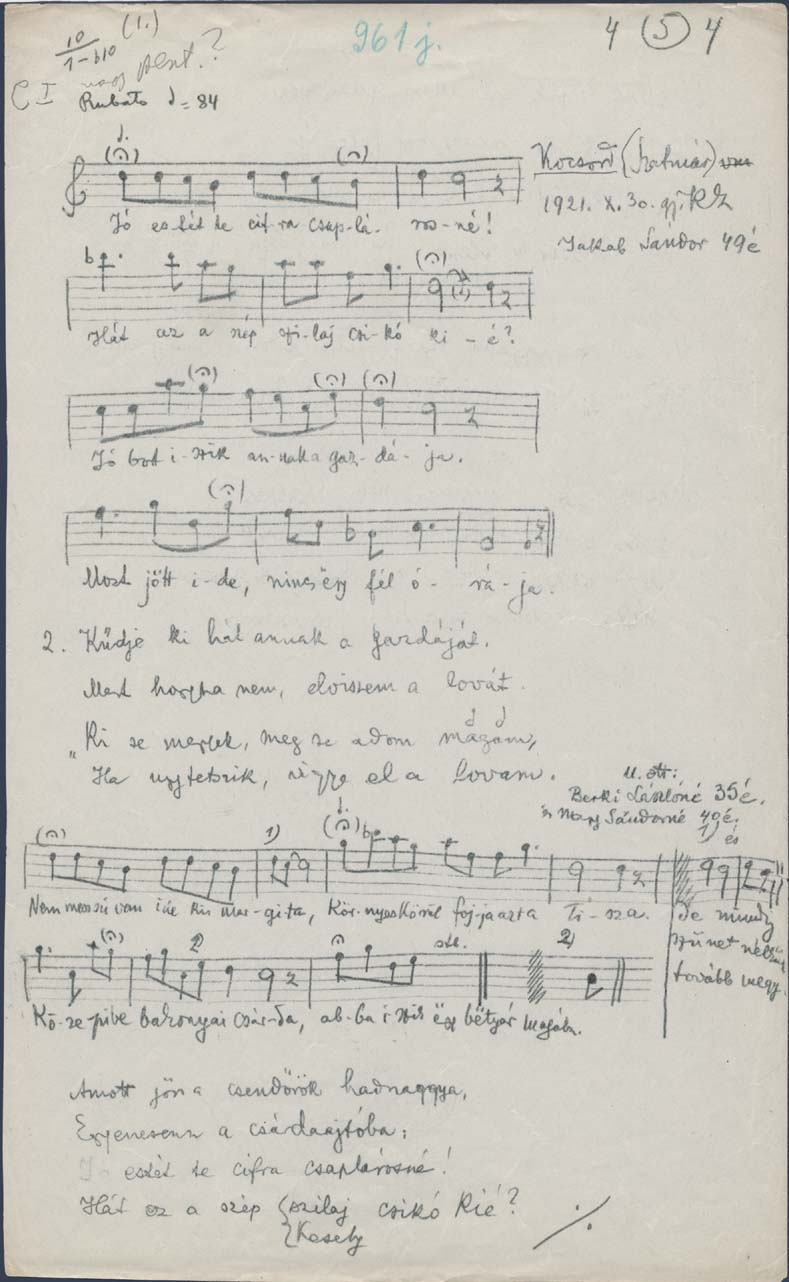 10/1-610 (1.)
961 j.
4 (5) 4
C I nagy pent.?
Rubato ♩= 84
Kocsord (Szatmár)
1921. X. 30. gy. KZ
Jakab Sándor 49 é
Jó es-tét te cif-ra csap-lá-ros-né!
Hát az a szép szi-laj csi-kó ki-é?
Jó bort i-szik an-nak a gaz-dá-ja.
Most jött i-de, nincs ëgy fél ó-rá-ja.
2. Kűdje ki hát annak a gazdáját.
Mert hogyha nem, elviszem a lovát.
„Ki se megyek, meg se adom magam,
Ha ugy tetszik, vigye el a lovam.
U. ott:
Berki Lászlóné 35 é.
és Nagy Sándorné 40 é.
1) és
Nem messzi van ide Kis Mar-gi-ta, Kör-nyes körül foj-ja azt a Ti-sza.
de mindig
szünet nélkül
tovább megy.
stb.
Kö-ze-pibe bakonyai csár-da, ab-ba i-szik ëgy bëtyár magába.
Amott jön a csendőrök hadnaggya,
Egyenesenn a csárdaajtóba:
Jó estét te cifra csaplárosné!
Hát ez a szép {szilaj csikó kié?
{Kesely
./.